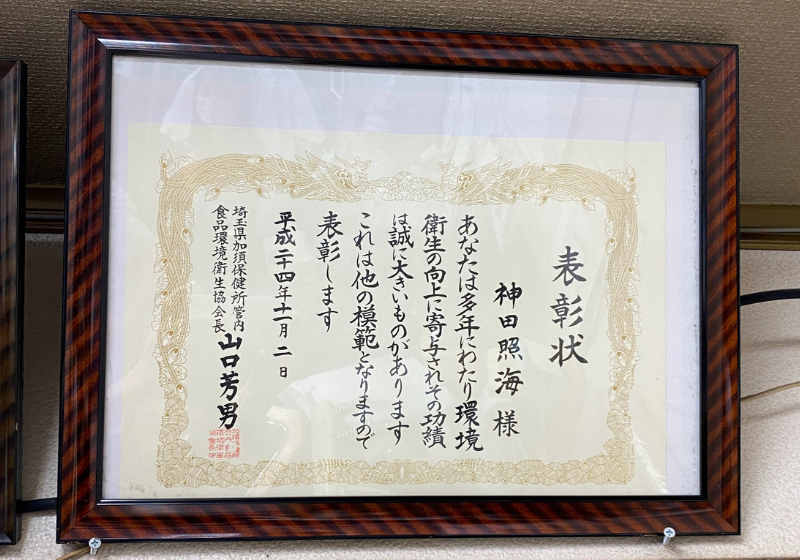 表彰状
神田照海様
あなたは多年にわたり環境
衛生の向上に寄与されその功績
は誠に大きいものがあります
これは他の模範となりますので
表彰します
平成二十四年十一月二日
埼玉県加須保健所管内
食品環境衛生協会長
山口芳男